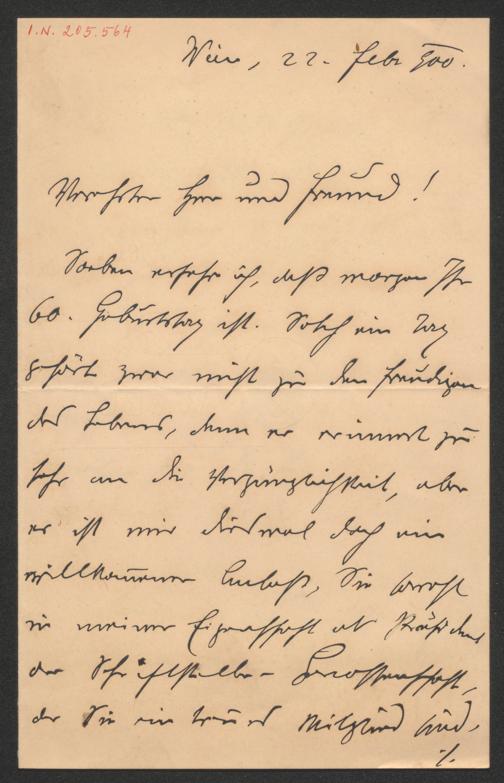 I.N. 205.564
Wien, 22. Febr 900.
Verehrter Herr und Freund!
Soeben erfahre ich, daß morgen Ihr
60. Geburtstag ist. Solch ein Tag
gehört zwar nicht zu den freudigen
des Lebens, denn er erinnert zu
sehr an die Vergänglichkeit, aber
er ist mir diesmal doch ein
willkom̄ener Anlaß, Sie sowohl
in meiner Eigenschaft als Präsident
der Schriftsteller-Genossenschaft,
der Sie ein treues Mitglied sind,
./.